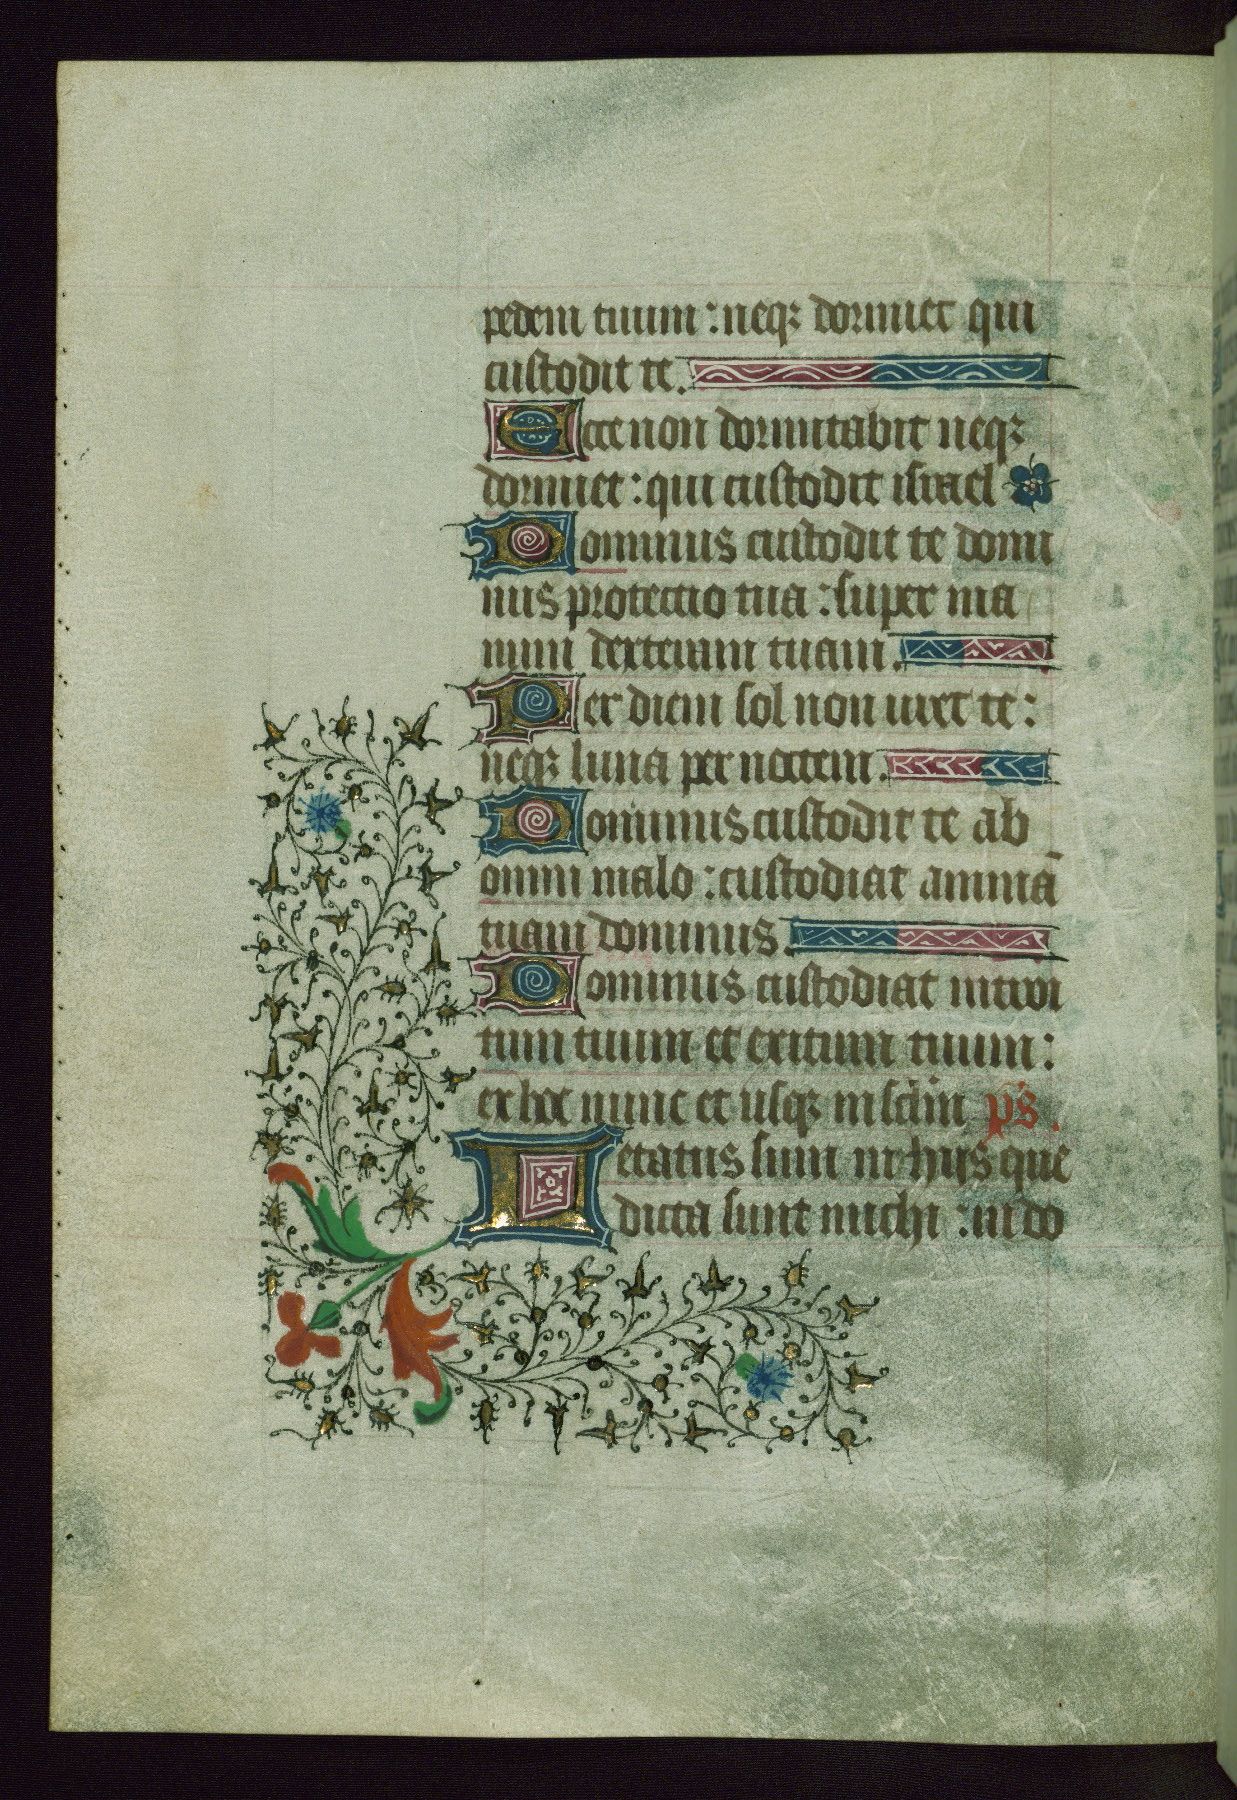 pedem tuum : neqꝫ dormiet qui
custodit te.
Ecce non dormitabit neqꝫ
dormiet : qui custodit israel
Dominus custodit te domi
nus protectio tua : super ma
num dexteram tuam.
Per diem sol non uret te :
neqꝫ luna per noctem.
Dominus custodit te ab
omni malo : custodiat animā
tuam dominus.
Dominus custodiat introi
tum tuum et exitum tuum :
ex hoc nunc et usqꝫ in sclm̄ ps̄.
Letatus sum in hijs que
dicta sunt michi : in do